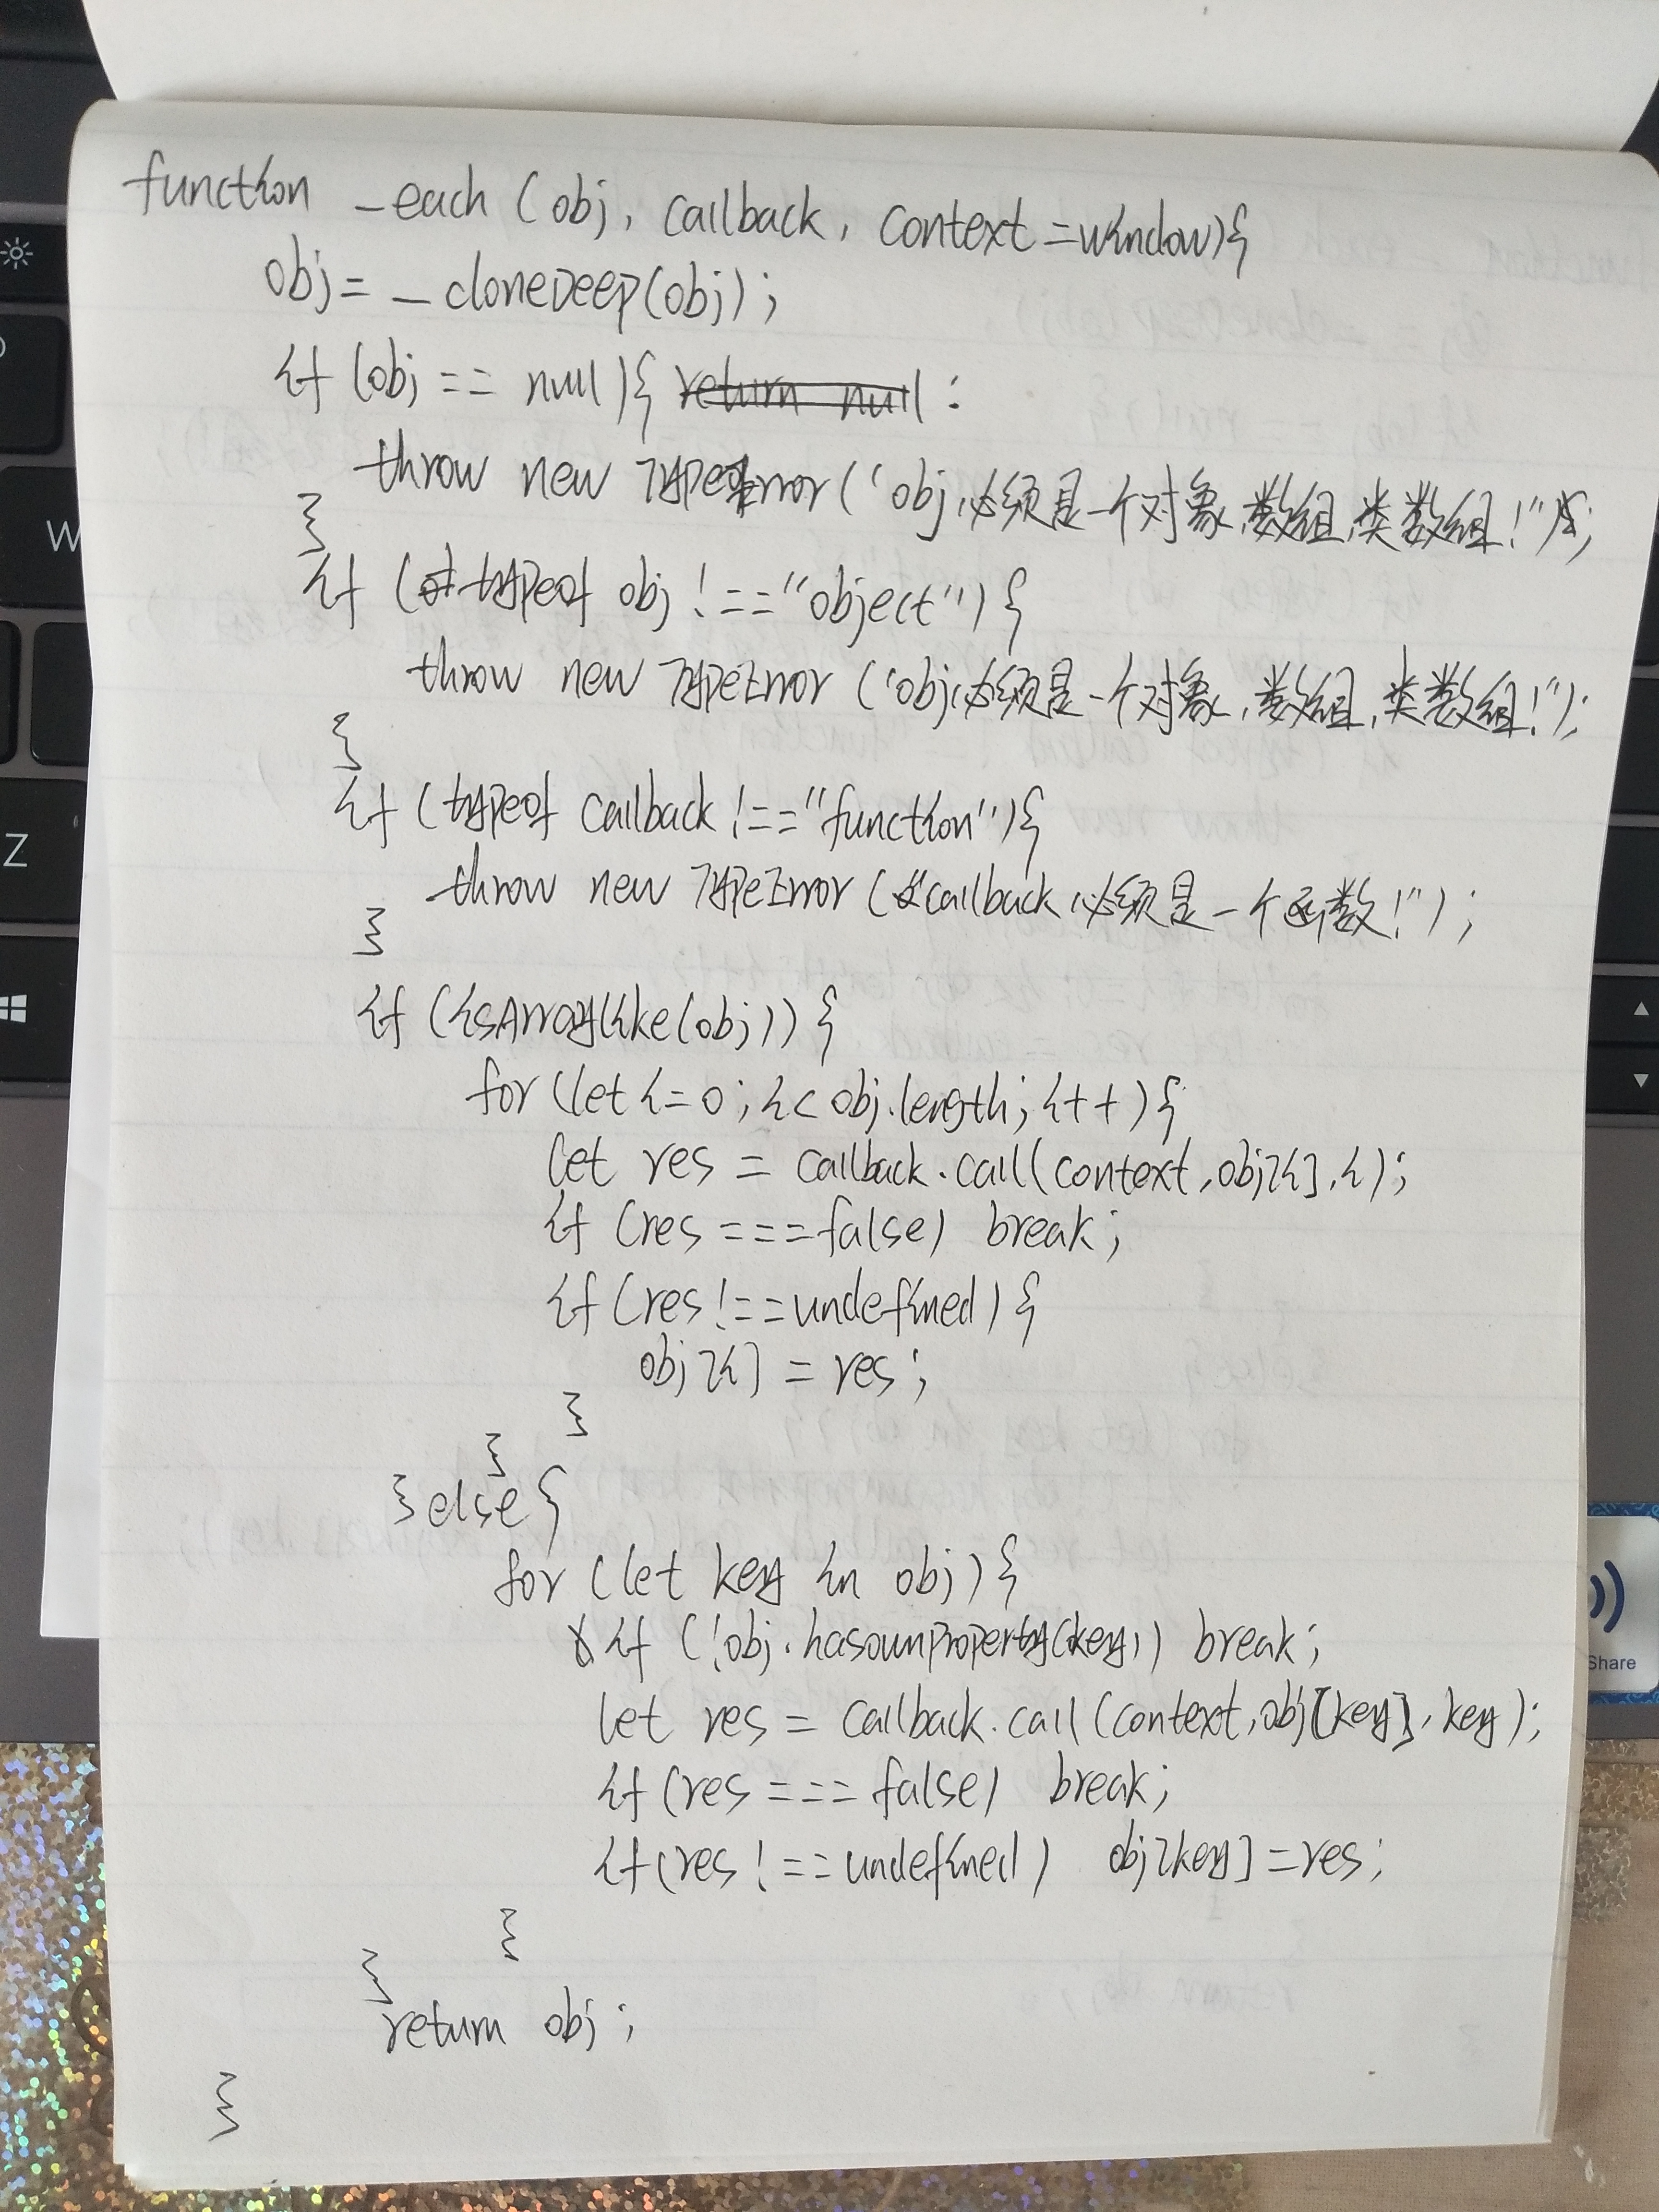 function _each (obj, callback, context=window){
obj = _cloneDeep(obj);
if (obj == null){ return null ;
throw new TypeError("obj必须是一个对象,数组,类数组!");
}
if (typeof obj !== "object") {
throw new TypeError ("obj必须是一个对象,数组,类数组!");
}
if (typeof callback !== "function"){
throw new TypeError ("callback必须是一个函数!");
}
if (isArraylike(obj)) {
for (let i=0; i< obj.length; i++){
let res = callback.call(context, obj[i], i);
if (res === false) break;
if (res !== undefined) {
obj[i] = res;
}
}
} else {
for (let key in obj) {
if (!obj.hasownProperty(key)) break;
let res = callback.call(context, obj[key], key);
if (res === false) break;
if (res !== undefined) obj[key] = res;
}
}
return obj;
}
W
Z
Share